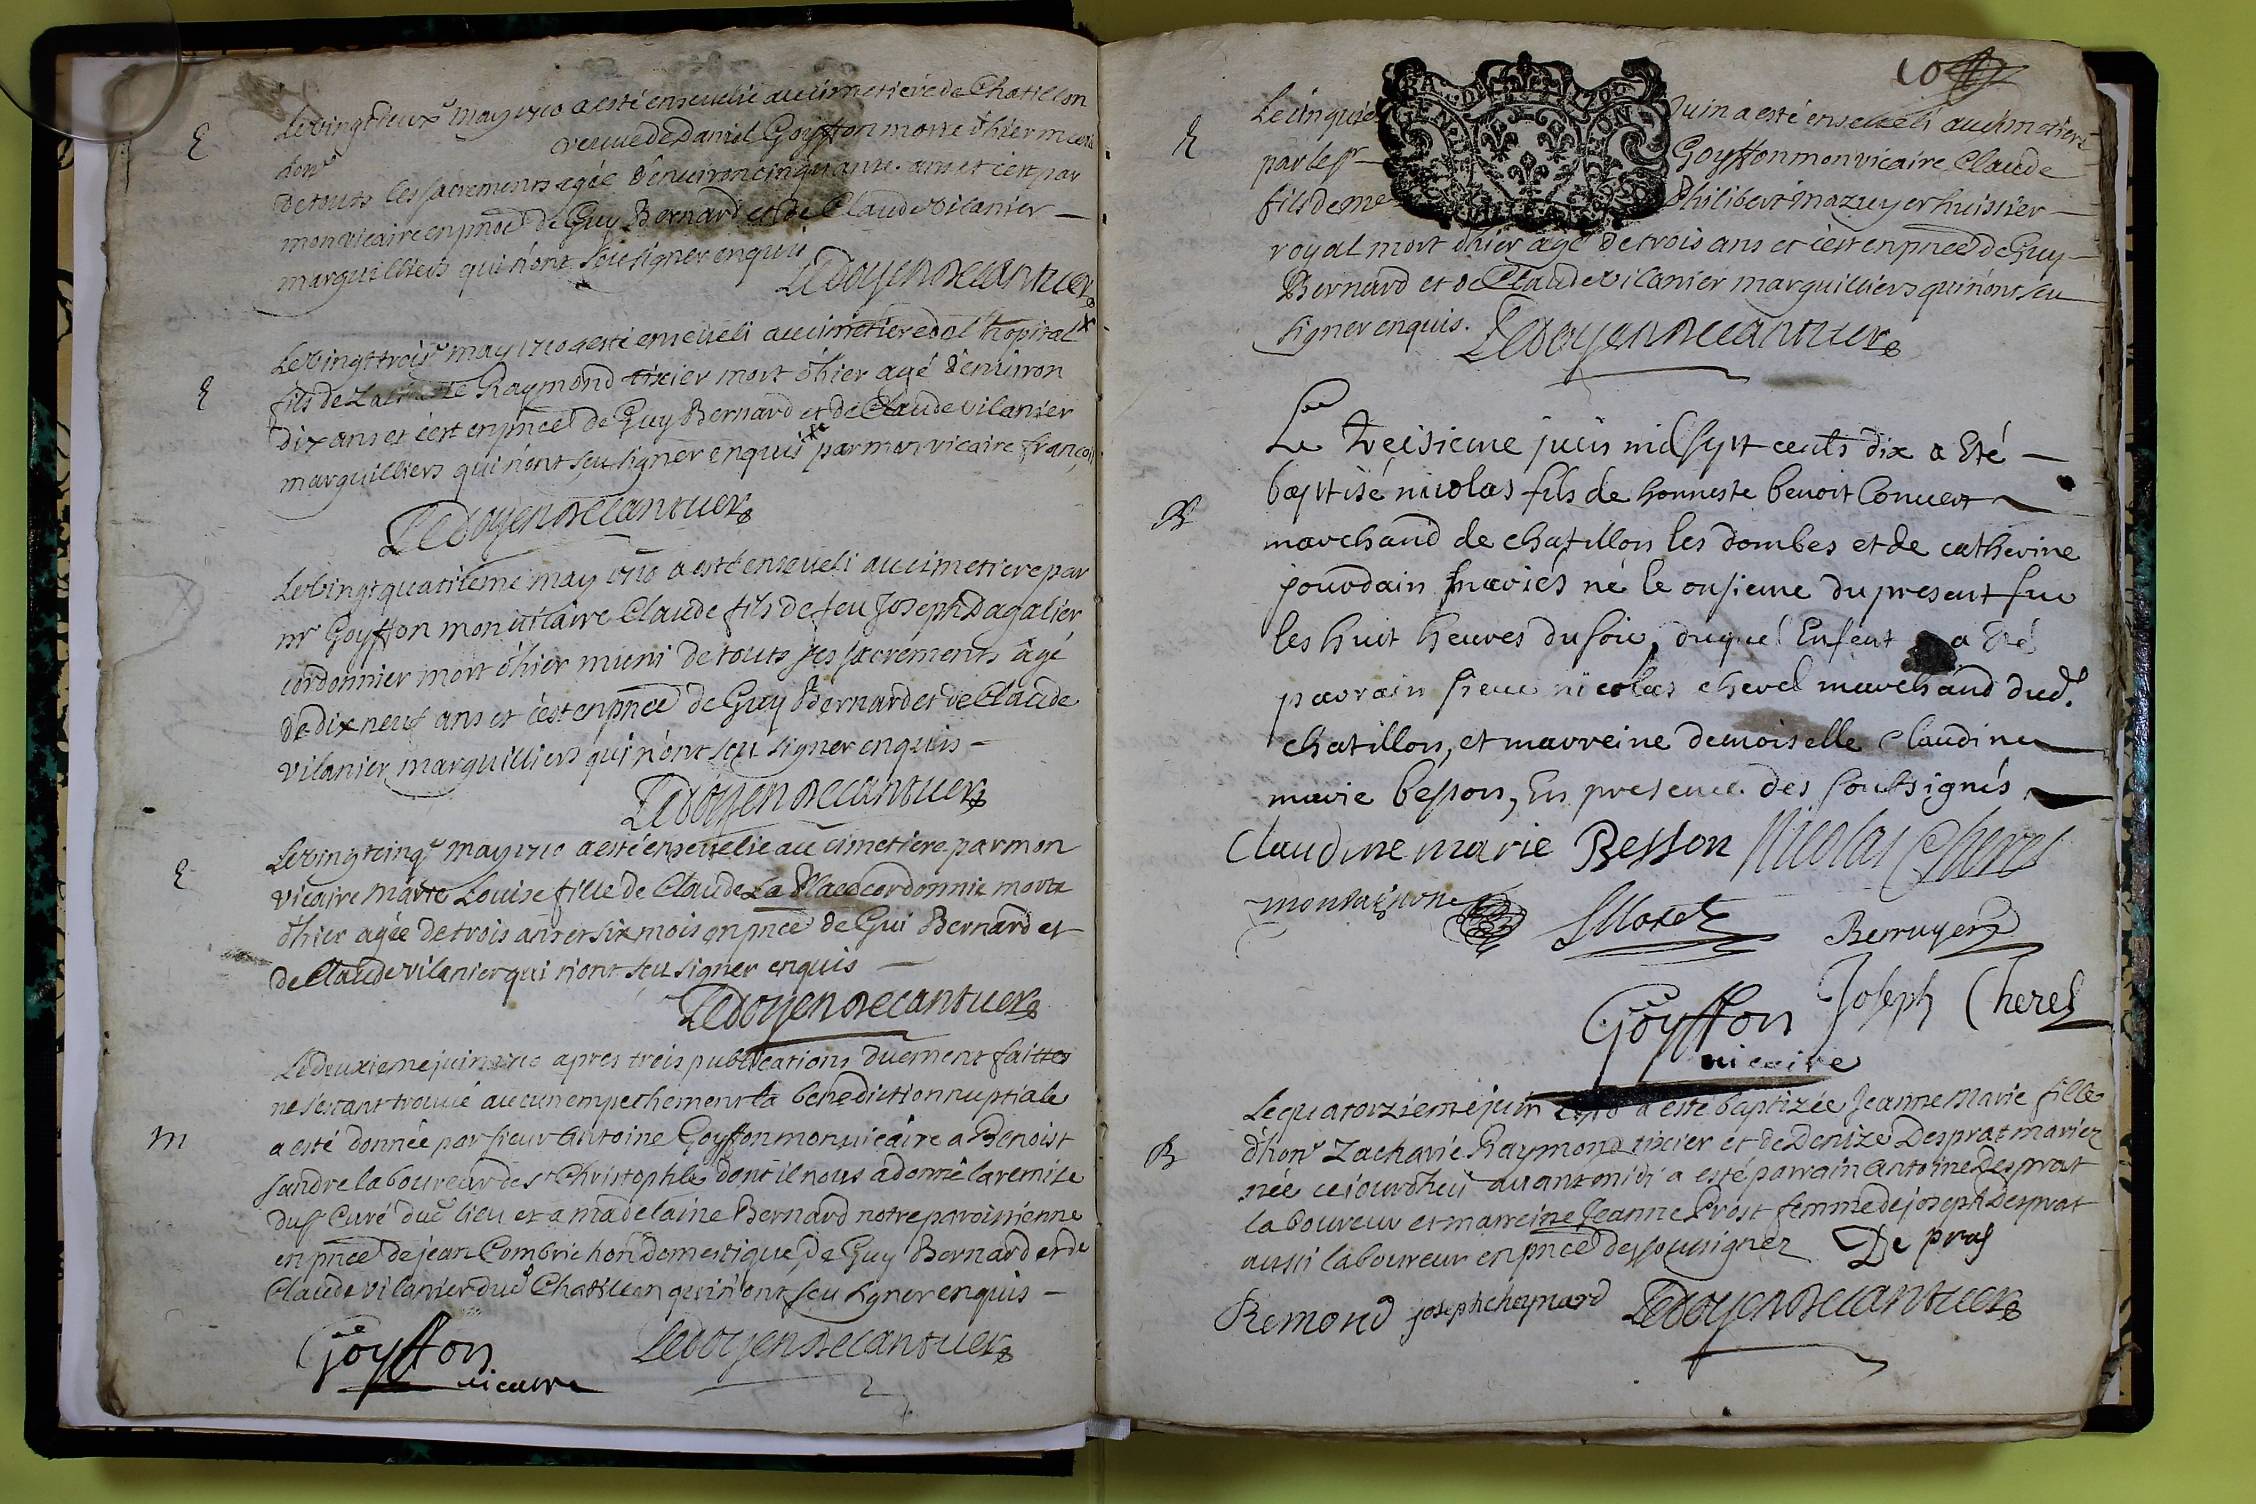 E
Le vingt deux^e may 1710 a esté ensevelie au cimetiere de Chatillon
hon^e veuve de Daniel Goyffon morte d'hier munie
de touts les sacrements agée d'environ cinquante ans et c'est par
mon vicaire en pnce de Guy Bernard et de Claude vilanier —
marguilliers qui n'ont sceu signer enquis
Ledoyen Decantuer
E
Le vingt trois^e may 1710 a esté enseveli au cimetiere de l'hopital x
fils de Zacharie Raymond tixier mort d'hier agé d'environ
dix ans et c'est en pnce de Guy Bernard et de Claude vilanier
marguilliers qui n'ont sceu signer enquis x par mon vicaire françois
Ledoyen Decantuer
Le vingt quatrieme may 1710 a esté enseveli au cimetiere par
mr Goyffon mon vicaire Claude fils de feu Joseph Dagalier
cordonnier mort d'hier muni de touts ses sacrements âgé
de dix neuf ans et c'est en pnce de Guy Bernard et de Claude
vilanier marguilliers qui n'ont sceu signer enquis —
Ledoyen Decantuer
E
Le vingt cinq^e may 1710 a esté ensevelie au cimetiere par mon
vicaire Marie Louise fille de Claude La Place cordonnie morte
d'hier agée de trois ans et six mois en pnce de Gui Bernard et
de Claude vilanier qui n'ont sceu signer enquis —
Ledoyen Decantuer
m
Le deuxieme juin 1710 apres trois publications duement faittes
ne s'estant trouvé aucun empechement la benediction nuptiale
a esté donnée par sieur Antoine Goyffon mon vicaire a Benoist
Sandre laboureur de St Christophle dont il nous a donné la remise
du sr Curé dud lieu et a madelaine Bernard notre paroissienne
en pnce de jean Combrichon domestique, de Guy Bernard et de
Claude vilanier dud Chatillon qui n'ont sceu signer enquis —
Goyffon
vicaire
Ledoyen Decantuer
10
E
Le cinquie Juin a esté enseveli au cimetiere
par le sr Goyffon mon vicaire Claude
fils de me Philibert mazuyer huissier —
royal mort d'hier agé de trois ans et c'est en pnce de Guy —
Bernard et de Claude vilanier marguilliers qui n'ont sceu
signer enquis. Ledoyen Decantuer
GENE
B
Le treisieme juin mil sept cents dix a Eté —
baptisé nicolas fils de honneste benoit Convert
marchand de chatillon les dombes et de catherine
jourdain mariés né le onsieme du present sur
les huit heures du soir, duquel Enfent a Eté
parrain sieur nicolas cherel marchand dud.
chatillon, et marreine demoiselle claudine
marie besson, En presence des soutsignés
Claudine marie Besson Nicolas Cherel
SMoret Berruyer
Goyffon Joseph Cherel
vicaire
B
Le quatorzieme juin 1710 a esté baptizée Jeanne Marie fille
d'hon^e Zacharie Raymond tixier et de Denize Desprat mariez
née cejourdhui avant midi a esté parrain Antoine Desprat
laboureur et marreine Jeanne Prost femme de joseph Desprat
aussi laboureur en pnce des soussignez De pras
Remond joseph cheynard Ledoyen Decantuer